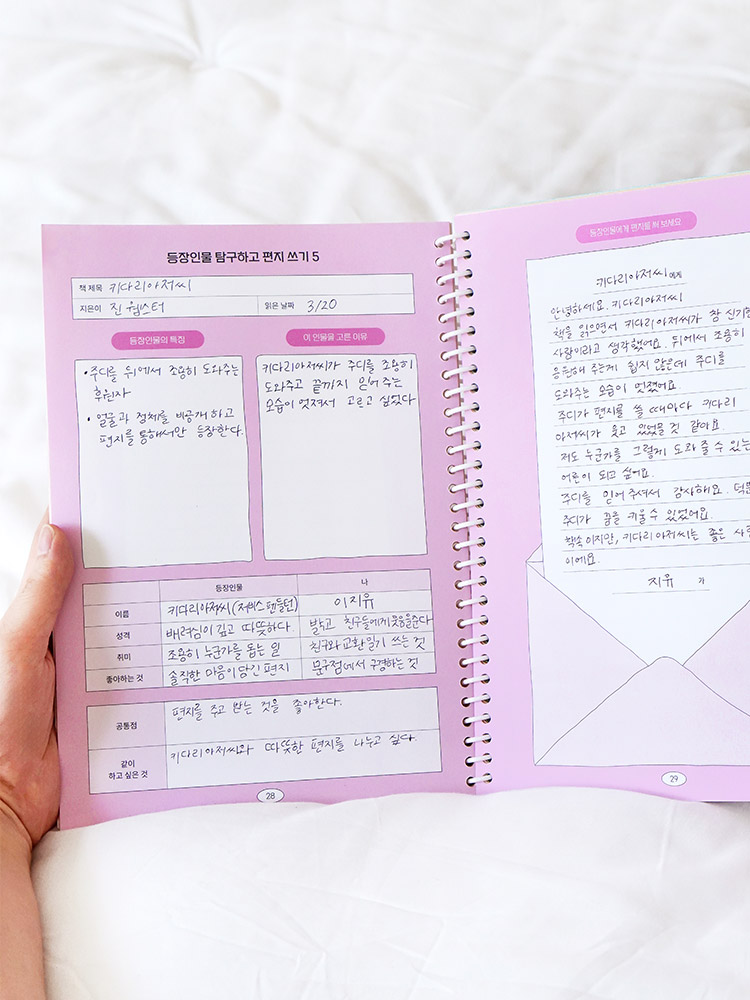 등장인물 탐구하고 편지 쓰기 5
책 제목 키다리아저씨
지은이 진 웹스터 읽은 날짜 3/20
등장인물의 특징
• 주디를 뒤에서 조용히 도와주는
후원자
• 얼굴과 정체를 비공개 하고
편지를 통해서만 등장한다.
이 인물을 고른 이유
키다리아저씨가 주디를 조용히
도와주고 끝까지 믿어 주는
모습이 멋져서 고르고 싶었다
등장인물 나
이름 키다리아저씨(저비스 팬들턴) 이지유
성격 배려심이 깊고 따뜻하다 밝고 친구들에게 웃음을준다
취미 조용히 누군가를 돕는 일 친구와 교환일기 쓰는 것
좋아하는 것 솔직한 마음이 담긴 편지 문구점에서 구경하는 것
공통점 편지를 주고 받는 것을 좋아한다.
같이
하고 싶은 것 키다리아저씨와 따뜻한 편지를 나누고 싶다.
28
등장인물에게 편지를 써 보세요
키다리아저씨 에게
안녕하세요. 키다리아저씨
책을 읽으면서 키다리아저씨가 참
사람이라고 생각했어요. 뒤에서 조용히
응원해 주는게 쉽지 않은데 주디를
도와주는 모습이 멋졌어요
주디가 편지를 쓸 때마다 키다리
아저씨가 웃고 있었을 것 같아요
저도 누군가를 그렇게 도와 줄 수 있는
어른이 되고 싶어요.
주디를 믿어 주셔서 감사해요.
주디가 꿈을 키울 수 있었어요.
책속이지만, 키다리 아저씨는 좋은
이에요.
지유 가
29